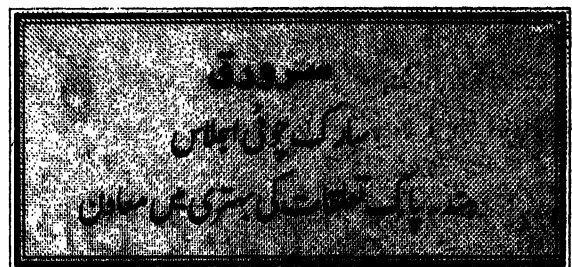 سرورق
سارک چوٹی اجلاس
ہند پاک تعلقات کی بہتری میں معاون